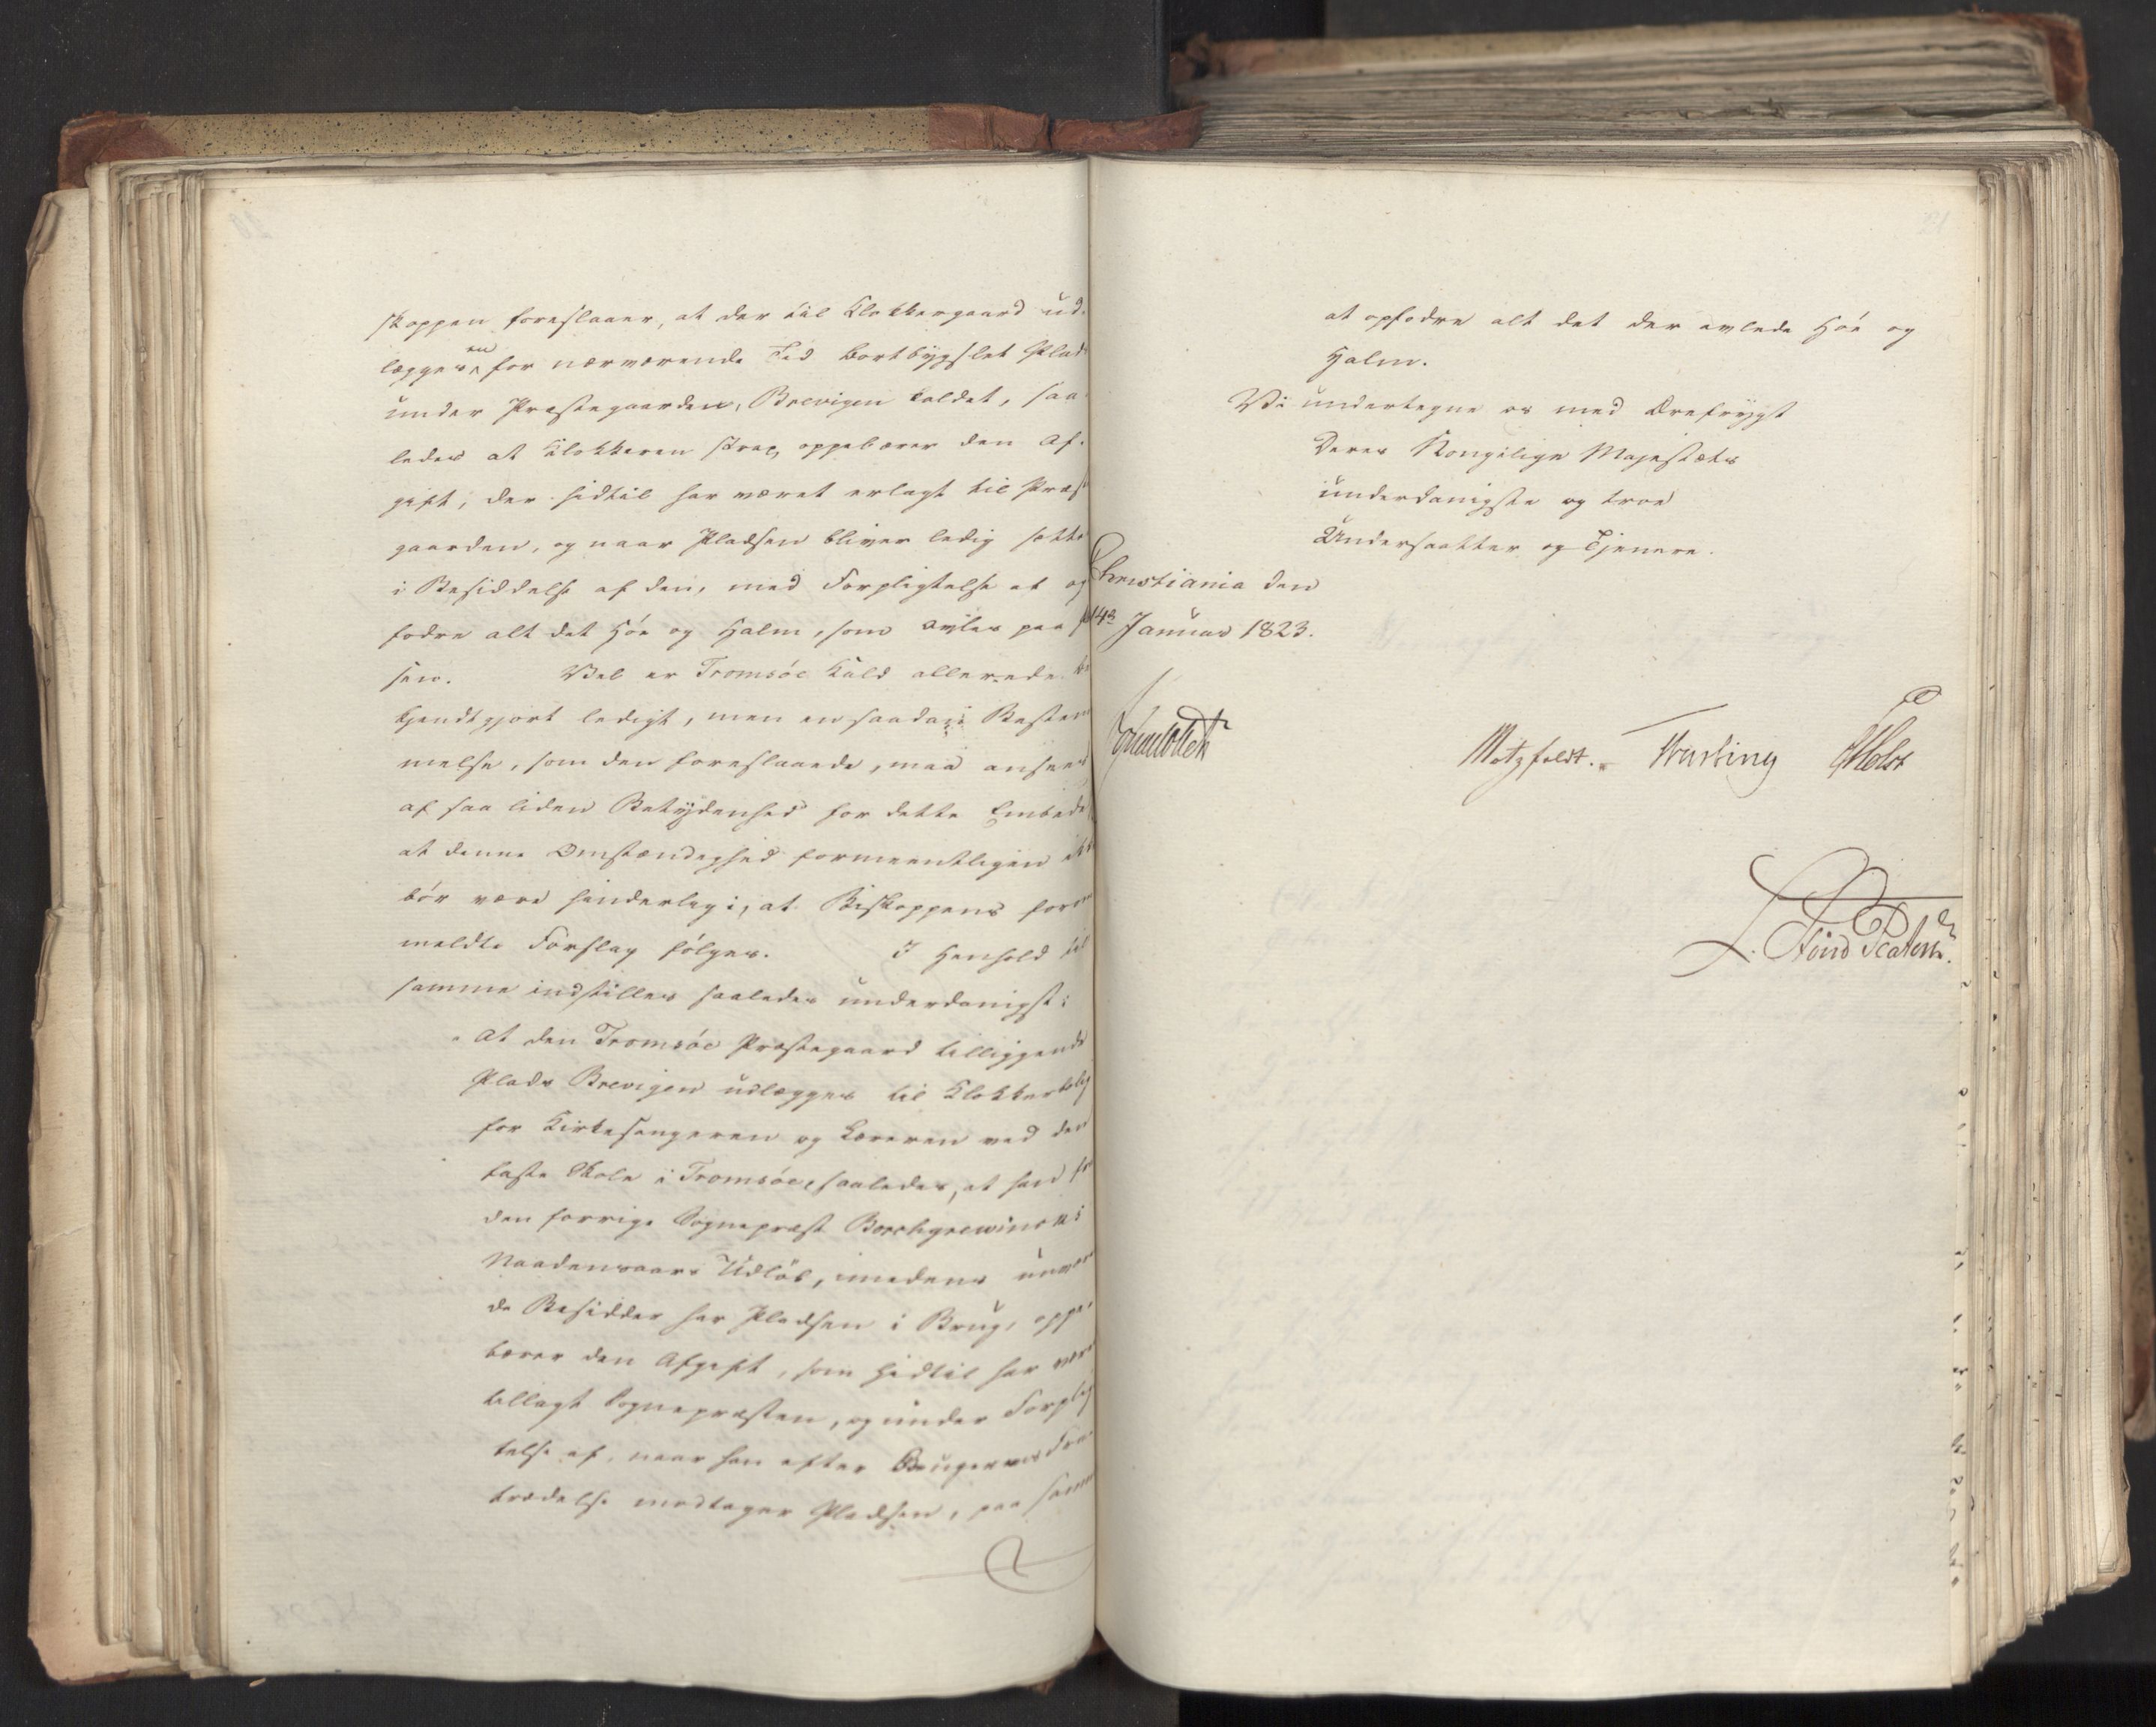 skoppen foreslaaer, at der til Klokkergaard ud-
lægges en for nærværende Tid bortbygslet Plads
under Præstegaarden, Brevigen kaldet, saa-
ledes at Klokkeren strax oppebærer den Af-
gift, der hidtil har været erlagt til Præste
gaarden, og naar Pladsen bliver ledig sættes
i Besiddelse af den, med Forpligtelse at op
fodre alt det Høe og Halm, som avles paa Plad
sen. Vel er Tromsöe Kald allerede be
kjendtgjort ledigt, men en saadan Bestem
melse, som den foreslaaede, maa ansees
af saa liden Betydenhed for dette Embede,
at denne Omstændighed formeentligen ikke
bör være hinderlig i, at Biskoppens foran
meldte Forslag fölges. I Henhold til
samme indstilles saaledes underdanigst:
"At den Tromsöe Præstegaard tilliggende
Plads Brevigen udlægges til Klokkerbolig
for Kirkesangeren og Læreren ved den
faste Skole i Tromsöe, saaledes, at han fra
den forrige Sognepræst Borchgrewincks
Naadensaars Udlöb, imedens nuværen
de Besidder har Pladsen i Brug, oppe-
bærer den Afgift, som hidtil har været
tillagt Sognepræsten, og under Forplig
telse af, naar han efter Brugerens Fra-
trædelse modtager Pladsen, paa samme
at opfodre alt det der avlede Höe og
Halm.
Vi undertegne os med Ærefrygt
Deres Kongelige Majestæts
underdanigste og troe
Undersaatter og Tjenere.
Christiania den
14de Januar 1823.
Motzfeldt. Treschow Holst